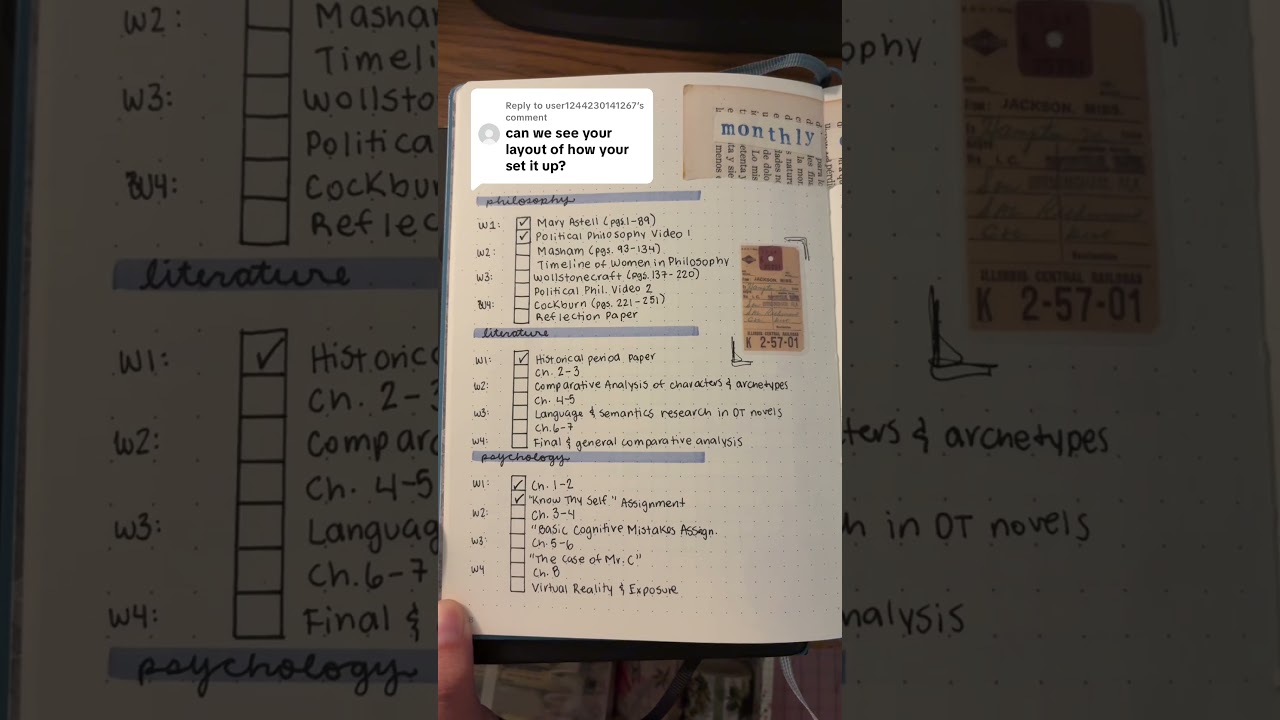 Reply to user1244230141267's
comment
can we see your
layout of how your
set it up?
monthly
philosophy
W1: Mary Astell (pgs.1-89)
Political Philosophy Video 1
W2: Masham (pgs. 93-134)
Timeline of Women in Philosophy
W3: Wollstonecraft (pgs. 137-220)
Political Phil. Video 2
W4: Cockburn (pgs. 221-251)
Reflection Paper
JACKSON, MISS.
ILLINOIS CENTRAL RAILROAD
K 2-57-01
literature
W1: Historical period paper
Ch. 2-3
W2: Comparative Analysis of characters & archetypes
Ch. 4-5
W3: Language & Semantics research in OT novels
Ch. 6-7
W4: Final & general comparative analysis
psychology
W1: Ch. 1-2
"Know Thy Self" Assignment
W2: Ch. 3-4
"Basic Cognitive Mistakes Assign.
W3: Ch. 5-6
"The Case of Mr. C"
W4 Ch. 8
Virtual Reality & Exposure